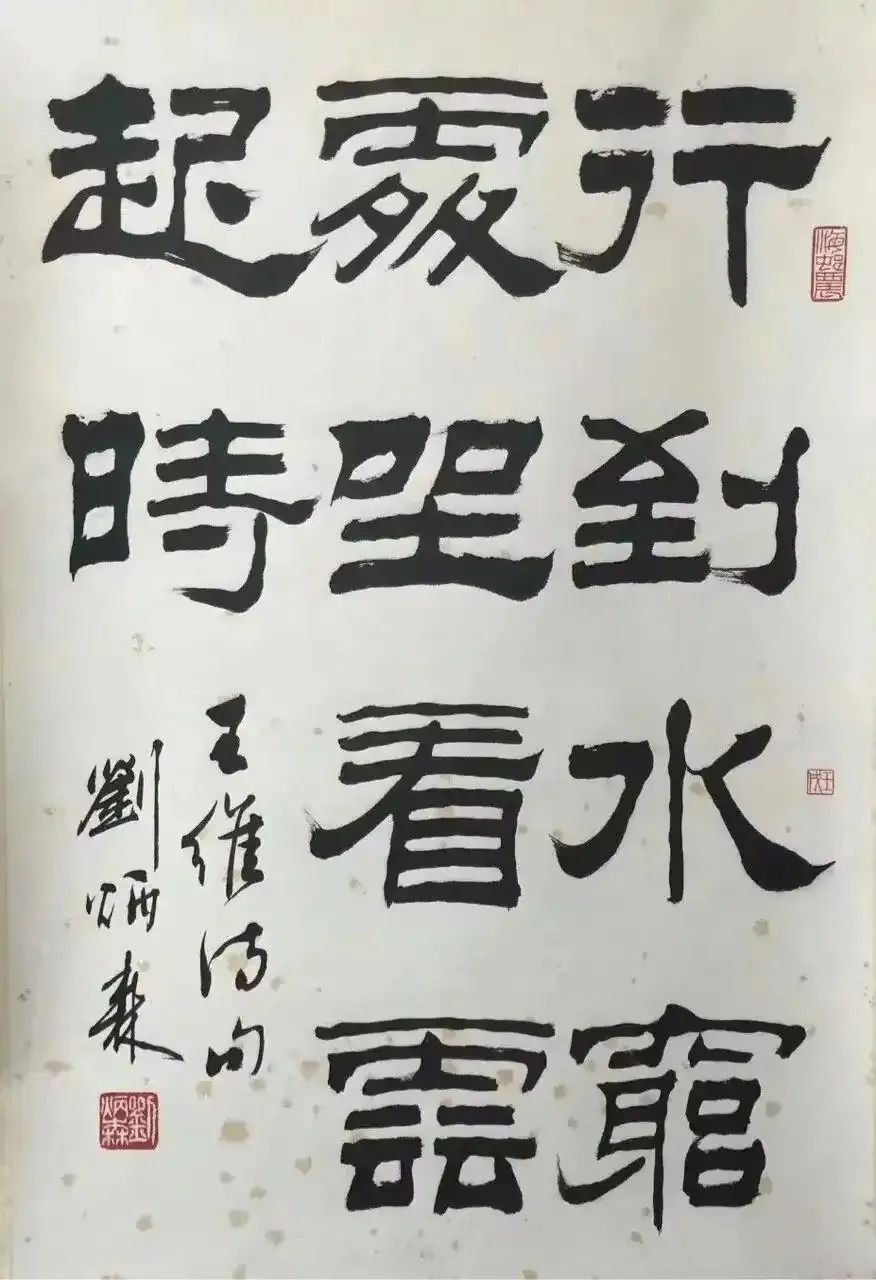 行到水窮
處坐看雲
起時
王維詩句
劉炳森
劉炳森